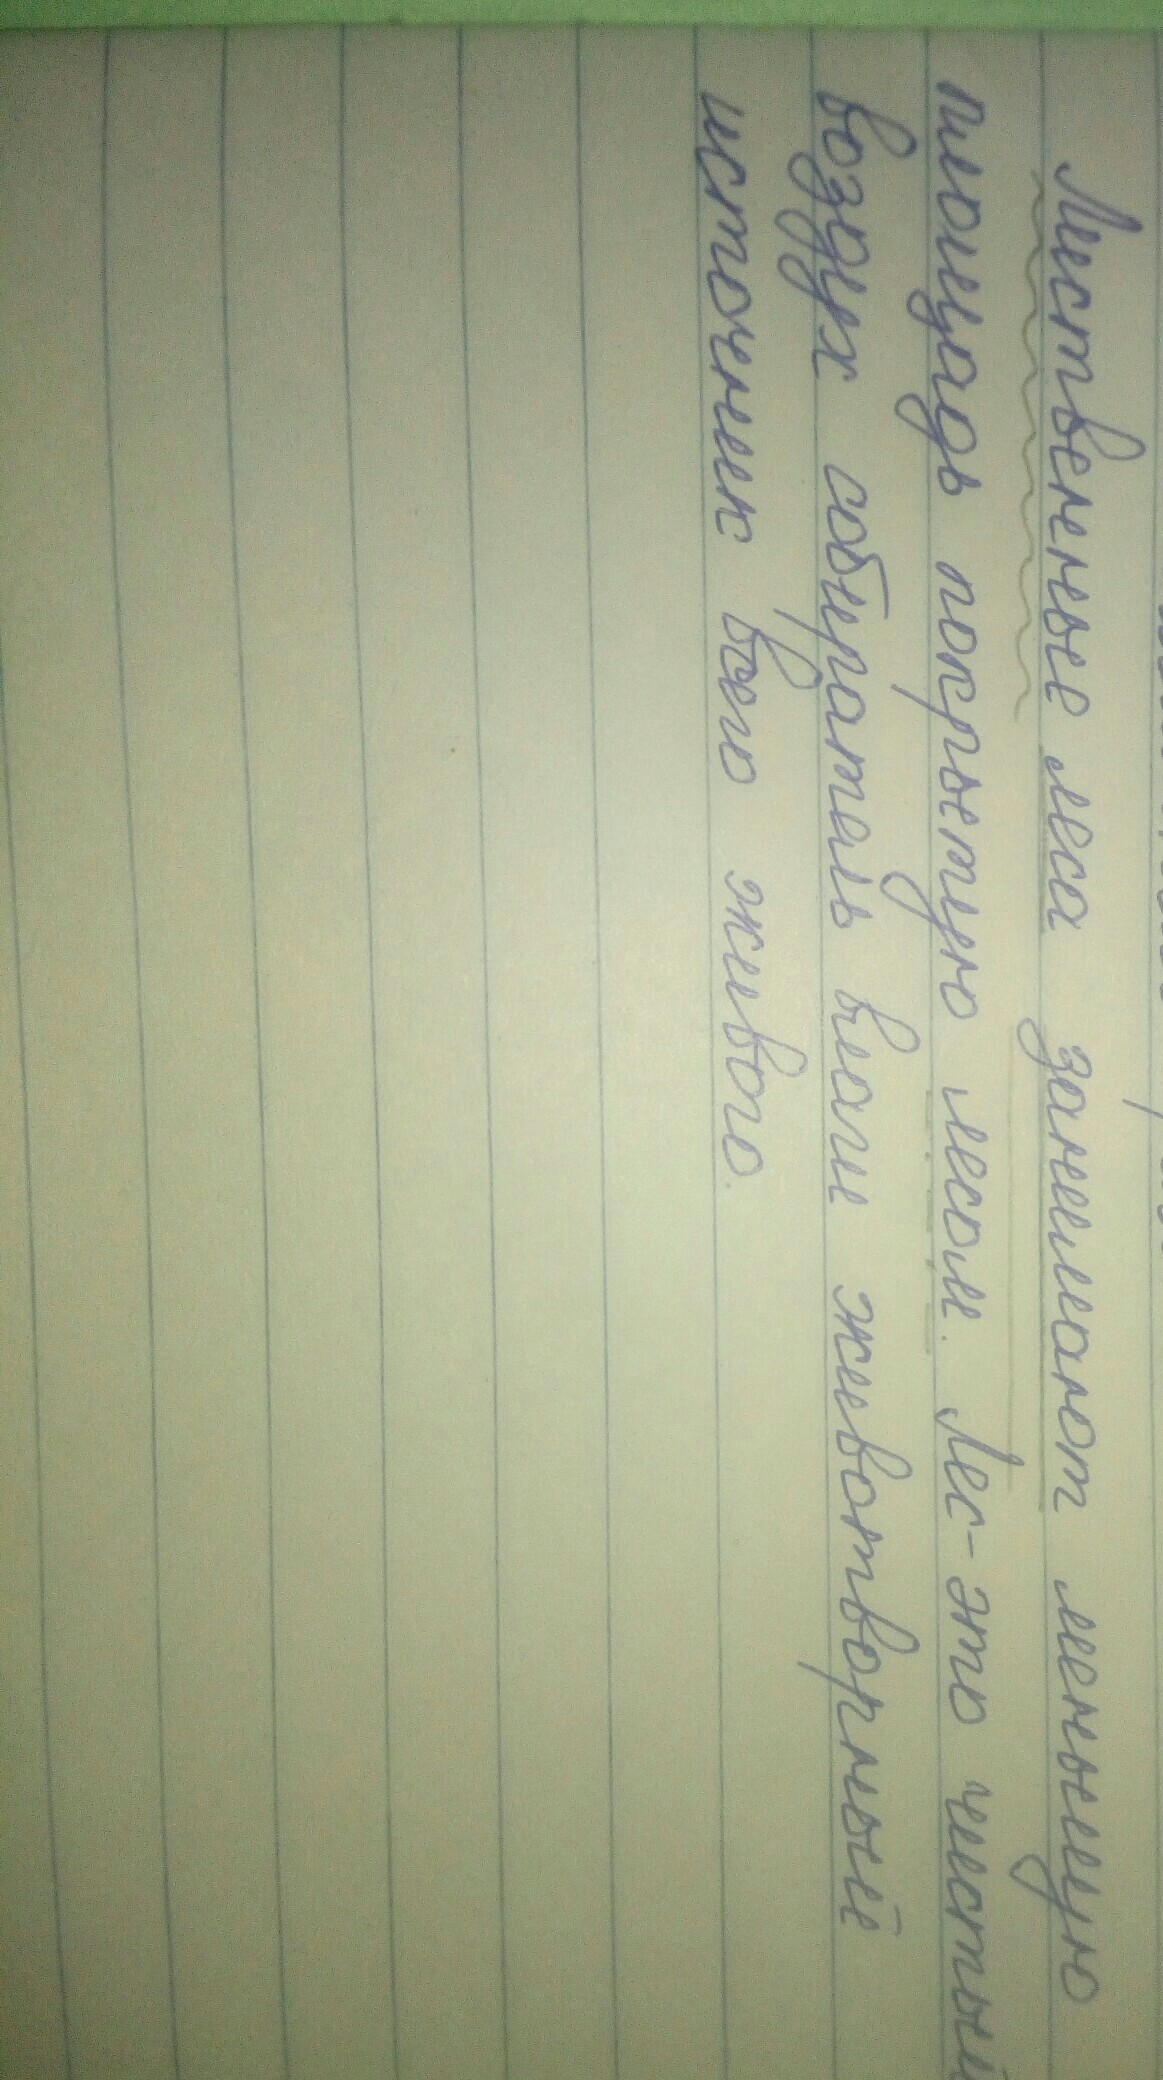 Лиственные леса занимают меньшую
площадь покрытую лесом. Лес-это чистый
воздух собиратель влаги животворный
источник всего живого.